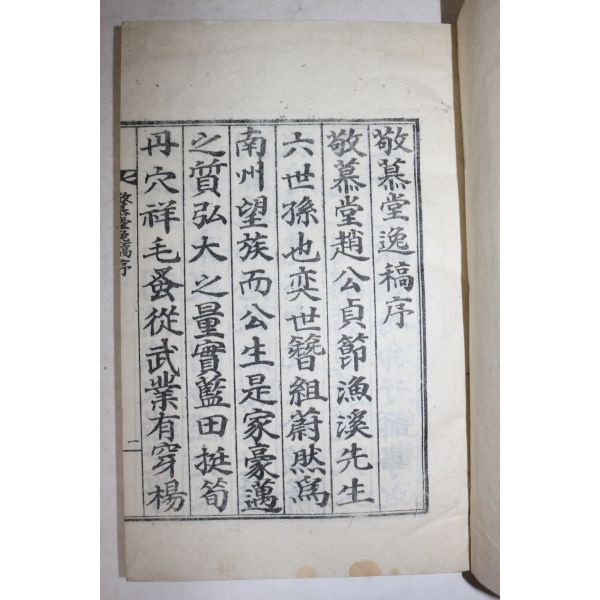 敬慕堂逸稿序
敬慕堂趙公貞節漁溪先生
六世孫也奕世簪組蔚然爲
南州望族而公生是家豪邁
之質弘大之量實藍田挺筍
丹穴祥毛蚤從武業有穿楊
敬慕堂逸稿序
一